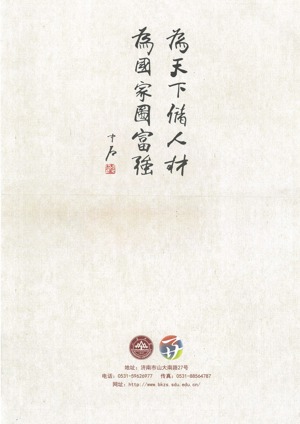 為天下儲人材
為國家圖富強
地址：济南市山大南路27号
电话：0531-59626977 传真：0531-88564787
网址：http://www.bkzs.sdu.edu.cn/